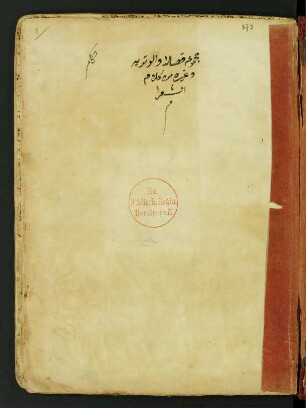 مجموعة قصائد والوترية
وغيره من كلام
الشعرا
م
كلم
Ex
Biblioth. Regia
Berolinensi.
1